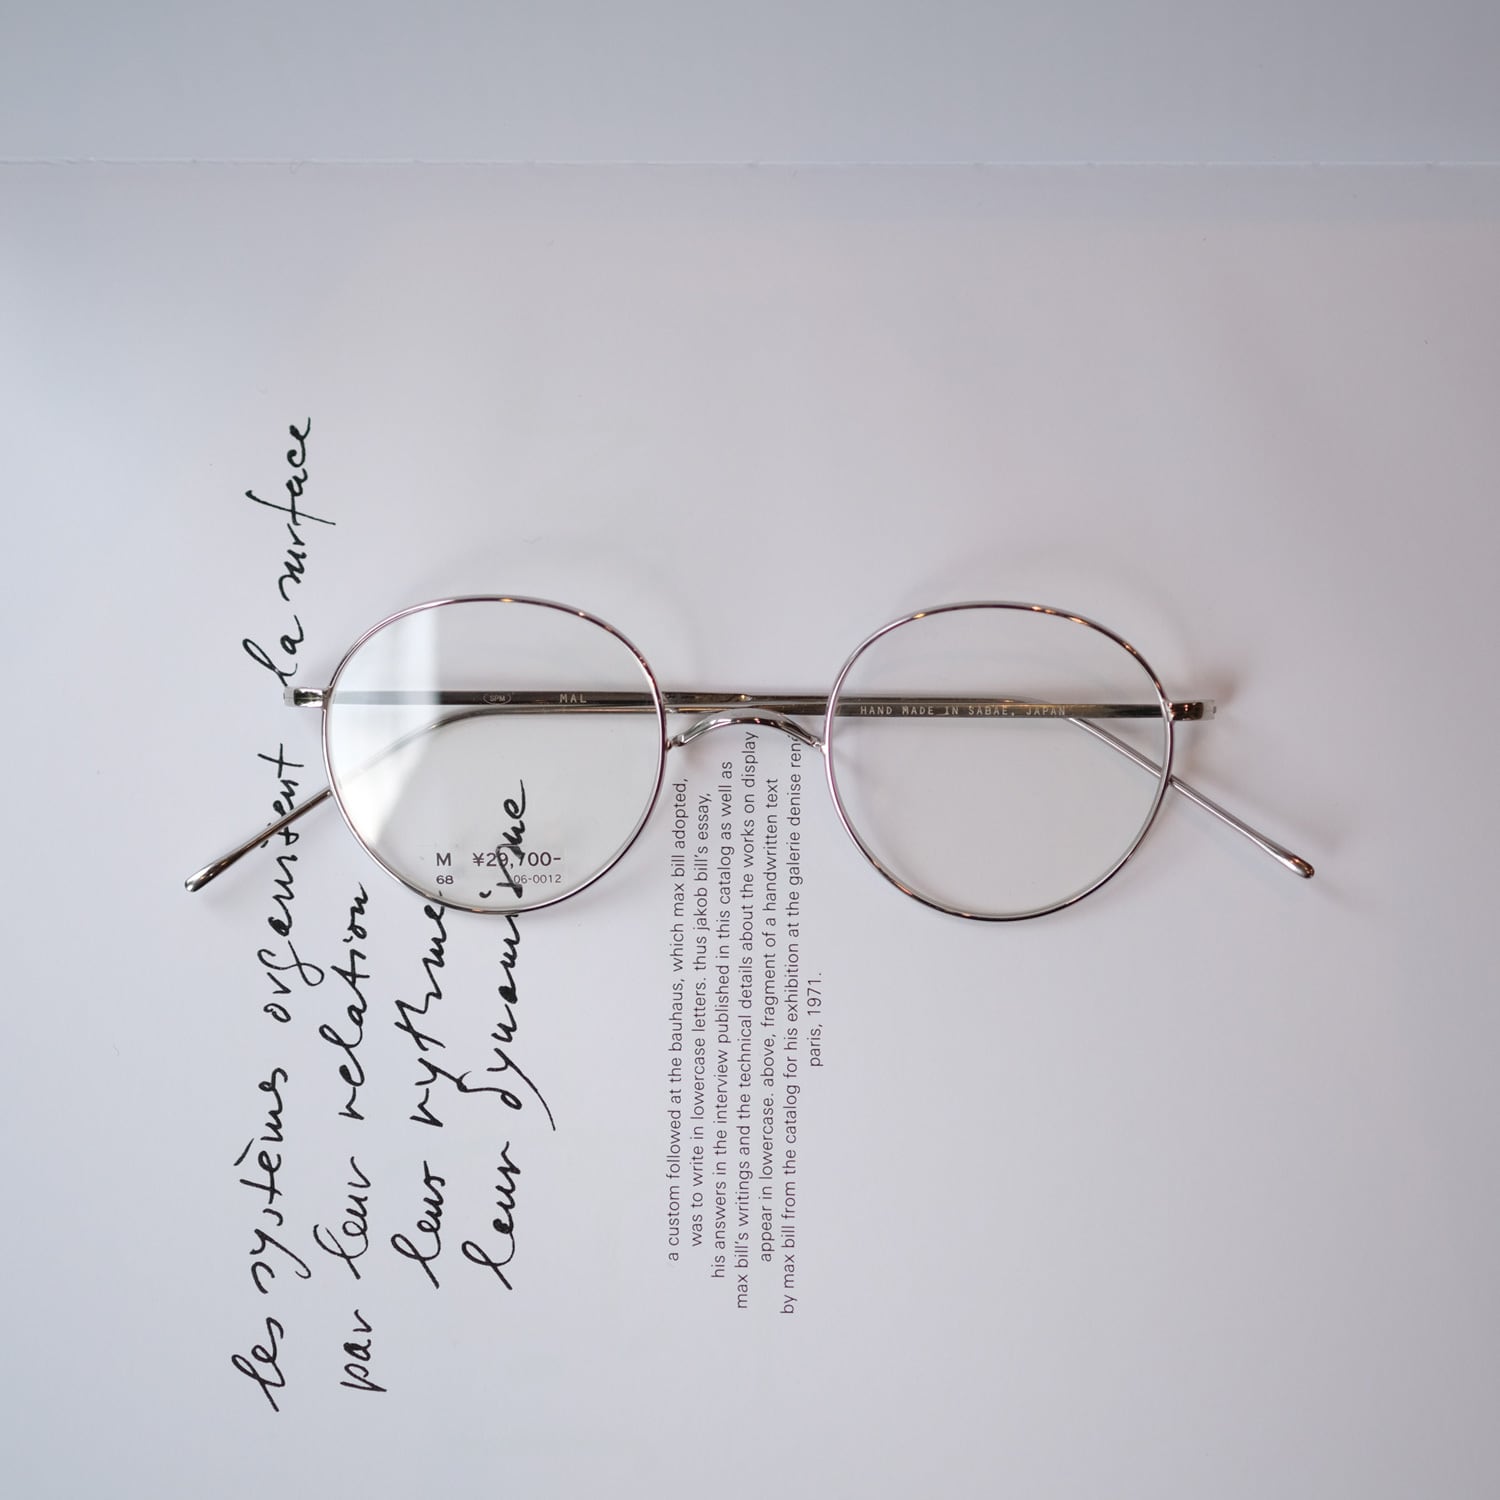 les systèmes organisent la surface
par leur relation
leur rythme
leur dynamisme
a custom followed at the bauhaus, which max bill adopted,
was to write in lowercase letters. thus jakob bill's essay,
his answers in the interview published in this catalog as well as
max bill's writings and the technical details about the works on display
appear in lowercase. above, fragment of a handwritten text
by max bill from the catalog for his exhibition at the galerie denise rené
paris, 1971.
SPM MAL
HAND MADE IN SABAE, JAPAN
M ¥29,700-
68 06-0012